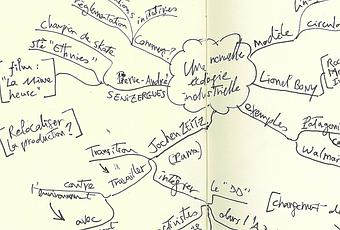 initiatives
Réglementation
comment?
Champion de
Sté "Ethnies"
film:
"La
heure"
Pierre-André
SÉNIZERGUES
Une nouvelle
écologie
industrielle
Modèle
circula
Lionel Bony
exemples
Patagoni
Walmar
[Relocaliser
la production?]
Jochen Zeitz
(Puma)
Transition
Travailler
intégrer
contre
l'environnement
avec
le "DD"
dans l'
[changement de